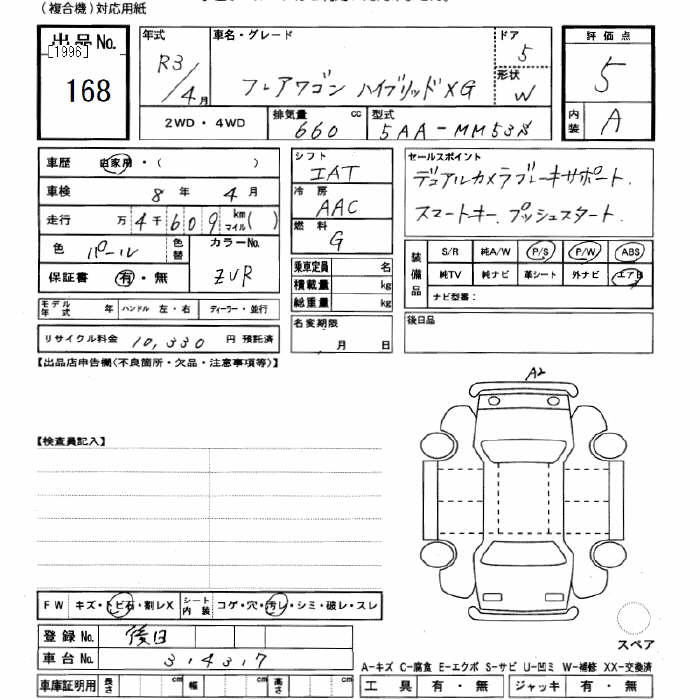 (複合機)対応用紙
出品No.
[1996]
168
年式
R3/4月
車名・グレード
フレアワゴン ハイブリッドXG
ドア
5
形状
W
評価点
5
内装
A
2WD・4WD
排気量
660 cc
型式
5AA-MM53S
車歴 自家用・( )
車検 8年 4月
走行 万4千609 km マイル( )
色 パール 色替
カラーNo.
ZVR
保証書 有・無
モデル年式 年 ハンドル 左・右 ディーラー・並行
リサイクル料金 10,330円 預託済
シフト
IAT
冷房
AAC
燃料
G
乗車定員 名
積載量 kg
総重量 kg
名変期限
月 日
セールスポイント
デュアルカメラブレーキサポート.
スマートキー. プッシュスタート.
装備品
S/R 純A/W P/S P/W ABS
純TV 純ナビ 革シート 外ナビ エアB
ナビ型番:
後日品
【出品店申告欄(不良箇所・欠品・注意事項等)】
A2
【検査員記入】
FW キズ・トビ石・割レX シート内装 コゲ・穴・汚レ・シミ・破レ・スレ
登録No. 後日
車台No. 314317
車庫証明用 長さ cm 幅 cm 高さ cm
スペア
A-キズ C-腐食 E-エクボ S-サビ U-凹ミ W-補修 XX-交換済
工具 有・無 ジャッキ 有・無